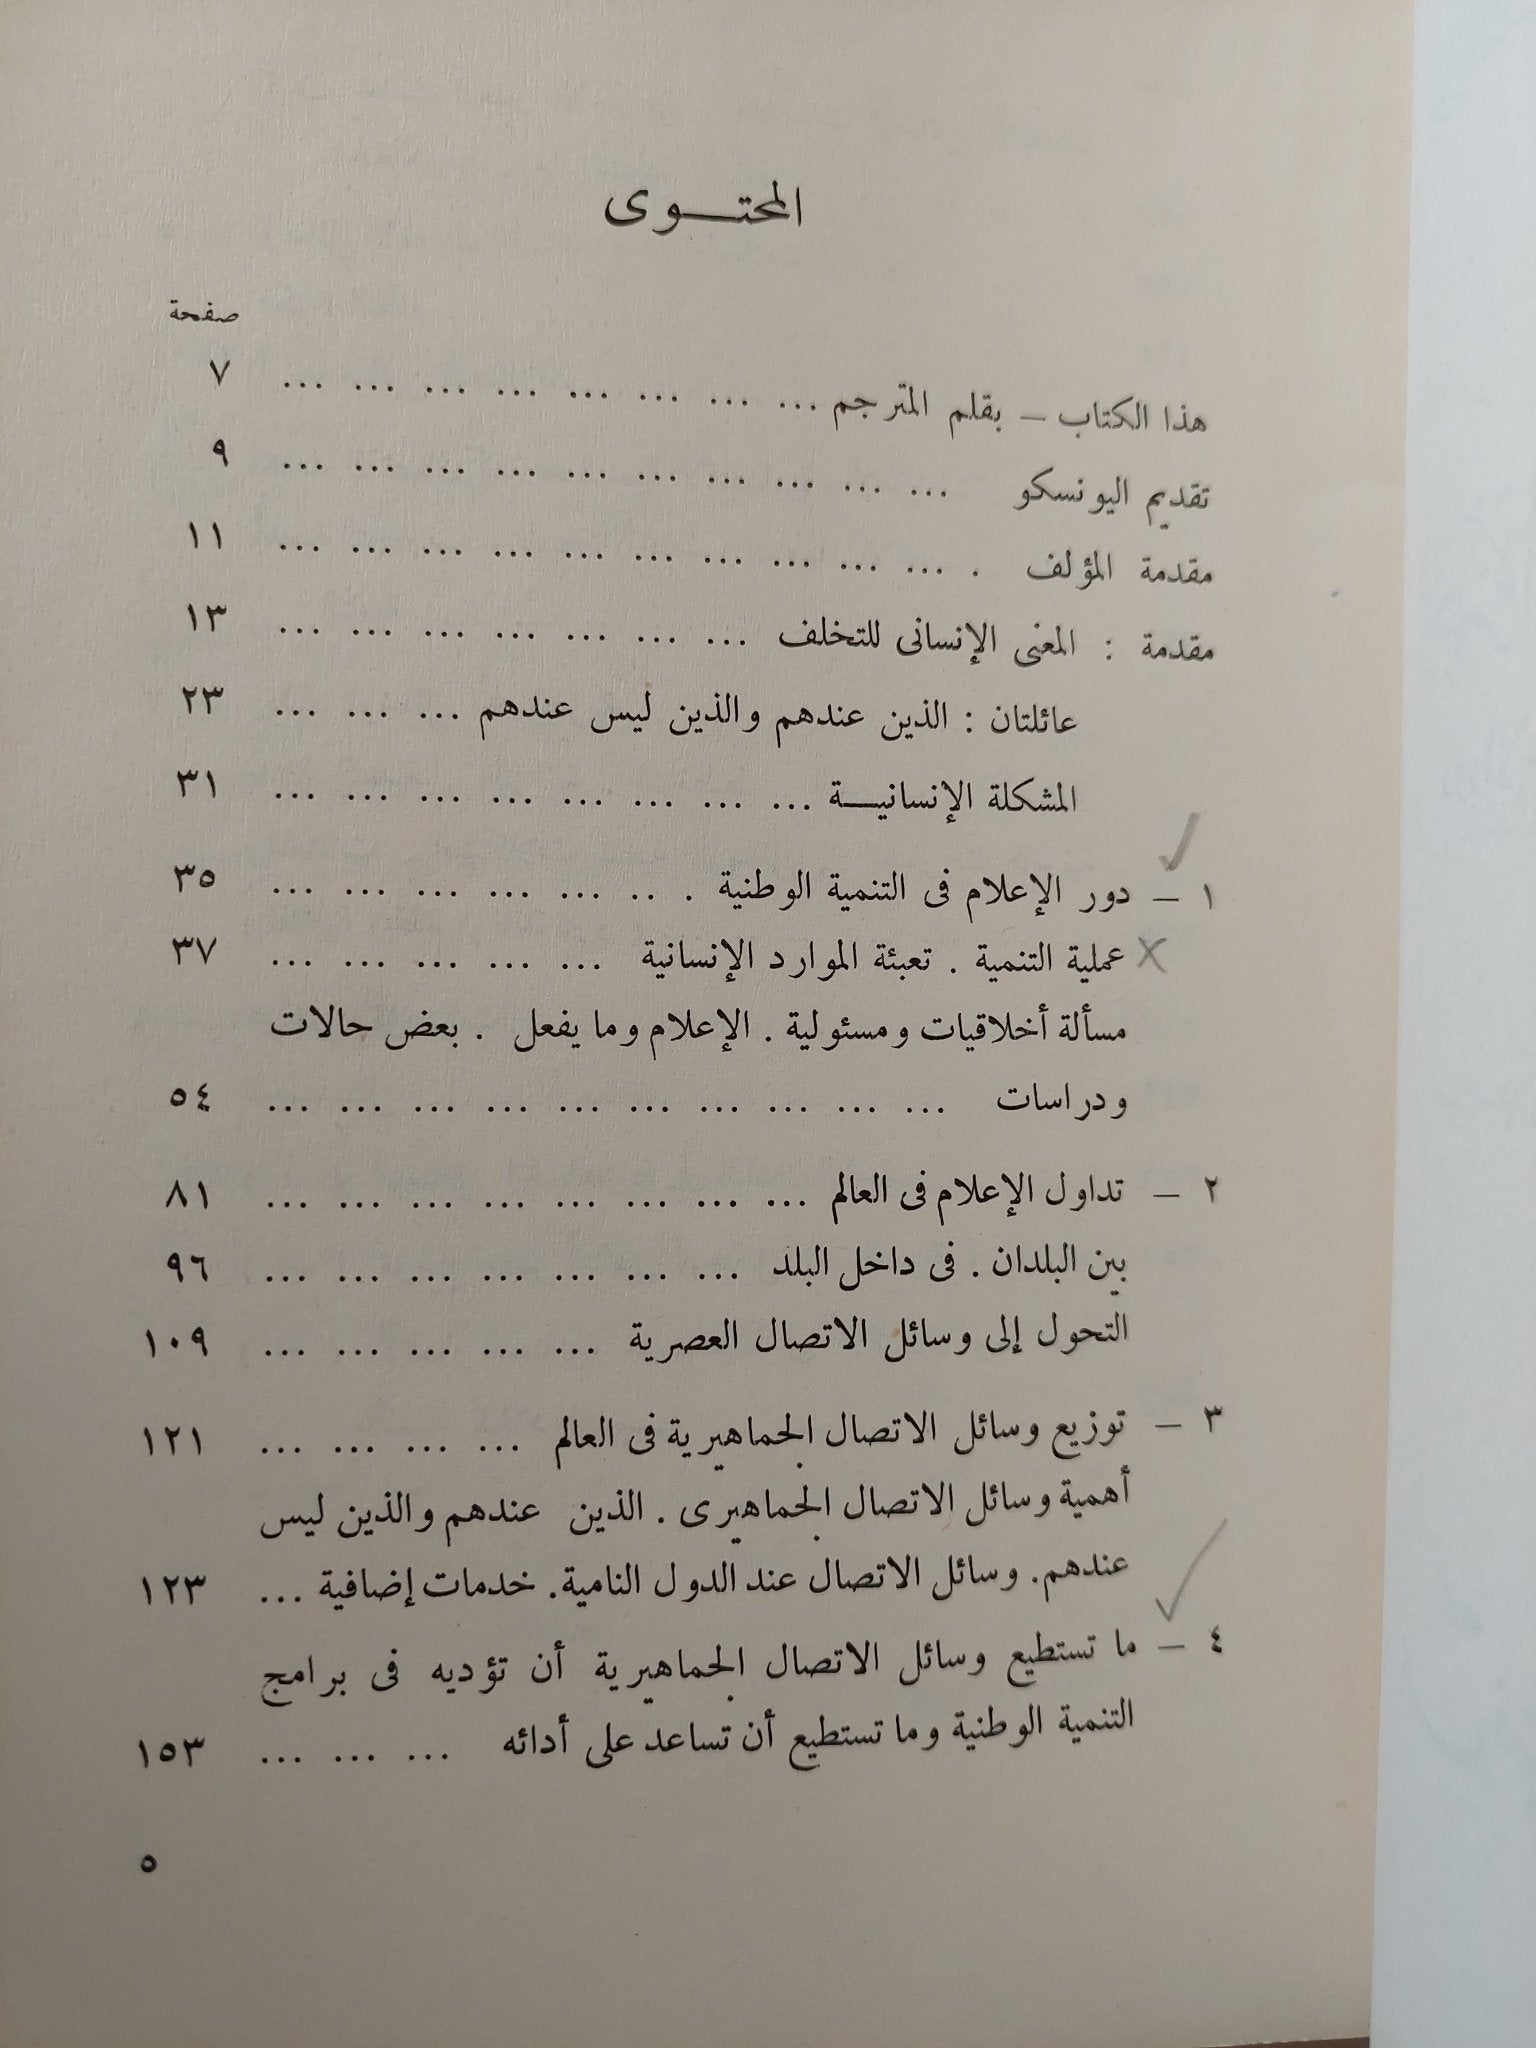 المحتــوى
صفحة
هذا الكتاب – بقلم المترجم ... ... ... ... ... ... ... ... ٧
تقديم اليونسكو ... ... ... ... ... ... ... ... ... ... ٩
مقدمة المؤلف . ... ... ... ... ... ... ... ... ... ... ١١
مقدمة : المعنى الإنسانى للتخلف ... ... ... ... ... ... ... ١٣
عائلتان : الذين عندهم والذين ليس عندهم ... ... ... ٢٣
المشكلة الإنسانيــة ... ... ... ... ... ... ... ... ٣١
١ – دور الإعلام فى التنمية الوطنية . .. ... ... ... ... ... ... ٣٥
عملية التنمية . تعبئة الموارد الإنسانية ... ... ... ... ... ٣٧
مسألة أخلاقيات ومسئولية . الإعلام وما يفعل . بعض حالات
ودراسات ... ... ... ... ... ... ... ... ... ... ٥٤
٢ – تداول الإعلام فى العالم ... ... ... ... ... ... ... ... ٨١
بين البلدان . فى داخل البلد ... ... ... ... ... ... ... ٩٦
التحول إلى وسائل الاتصال العصرية ... ... ... ... ... ١٠٩
٣ – توزيع وسائل الاتصال الجماهيرية فى العالم ... ... ... ... ١٢١
أهمية وسائل الاتصال الجماهيرى . الذين عندهم والذين ليس
عندهم. وسائل الاتصال عند الدول النامية. خدمات إضافية ... ١٢٣
٤ – ما تستطيع وسائل الاتصال الجماهيرية أن تؤديه فى برامج
التنمية الوطنية وما تستطيع أن تساعد على أدائه ... ... ... ١٥٣
٥